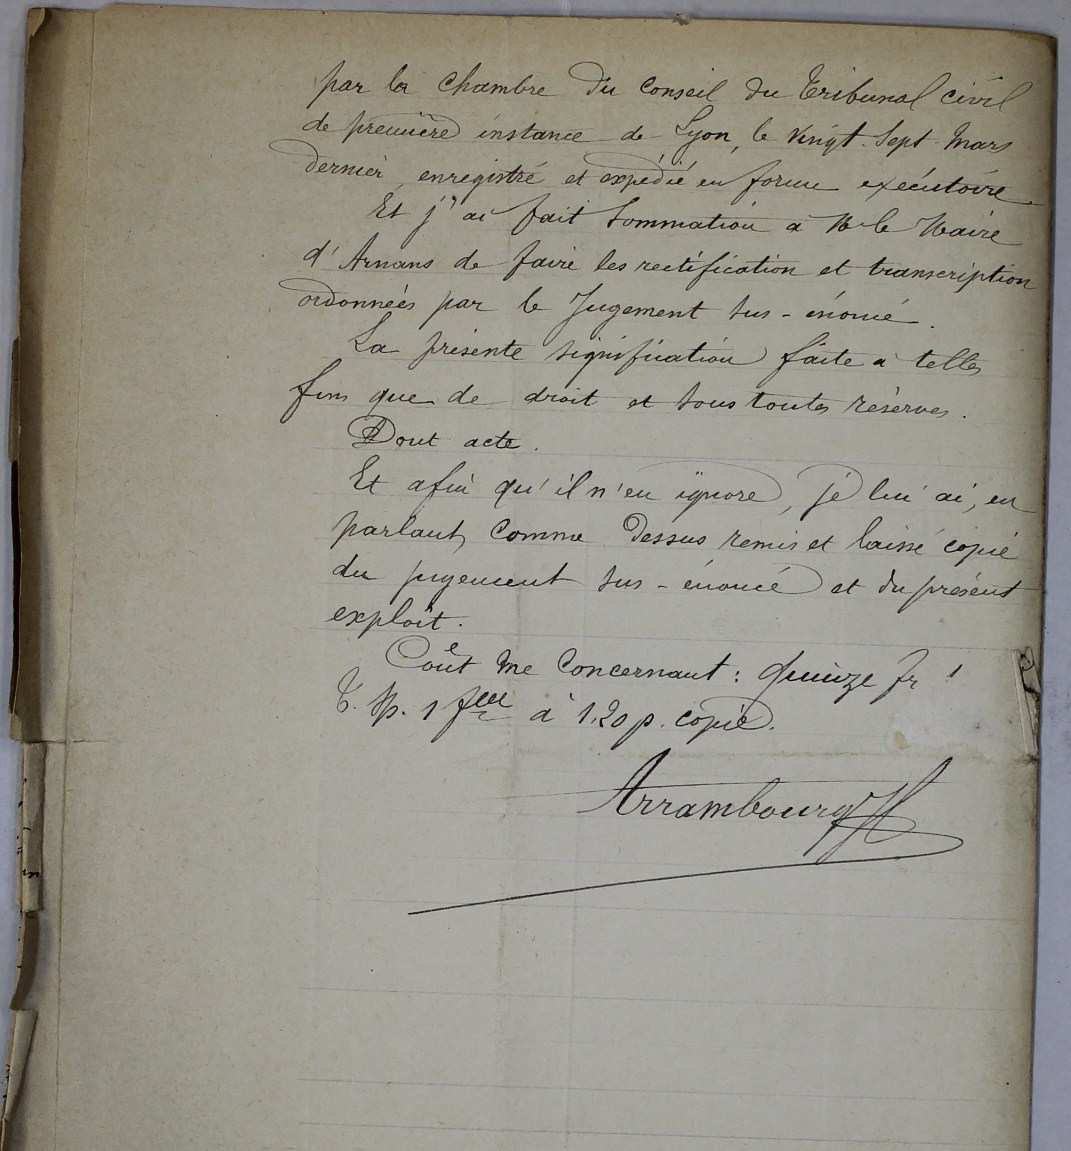 par la chambre du conseil du Tribunal civil
de première instance de Lyon, le vingt-sept mars
dernier, enregistré et expédié en forme exécutoire
Et j'ai fait sommation à M le Maire
d'Arnans de faire les rectification et transcription
ordonnées par le Jugement sus-énoncé.
La présente signification faite à telles
fins que de droit et sous toutes réserves.
Dont acte.
Et afin qu'il n'en ignore, je lui ai, en
parlant comme dessus remis et laissé copie
du jugement sus-énoncé et du présent
exploit.
Coût me concernant : quinze fr
T. Sp. 1 flle à 1.20 p. copie.
Arrambourg